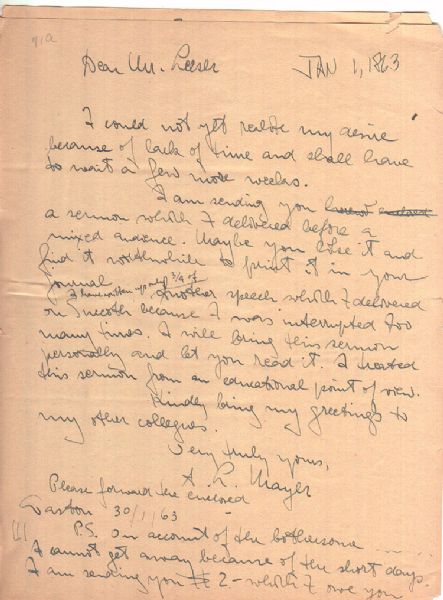 91a
Dear Mr. Leeser JAN 1, 1863
I could not yet realize my desire
because of lack of time and shall have
to wait a few more weeks.
I am sending you
a sermon which I delivered before a
mixed audience. Maybe you like it and
find it worthwhile to print it in your
journal.
I have written up only 3/4 of
another speech which I delivered
on Succoth because I was interrupted too
many times. I will bring this sermon
personally and let you read it. I treated
this sermon from an educational point of view.
Kindly bring my greetings to
my other collegues.
Very truly yours,
A. L. Mayer
Please forward the enclosed
30/1/63
P.S. On account of the bothersome .....
I cannot get away because of the short days.
I am sending you 2 - which I owe you